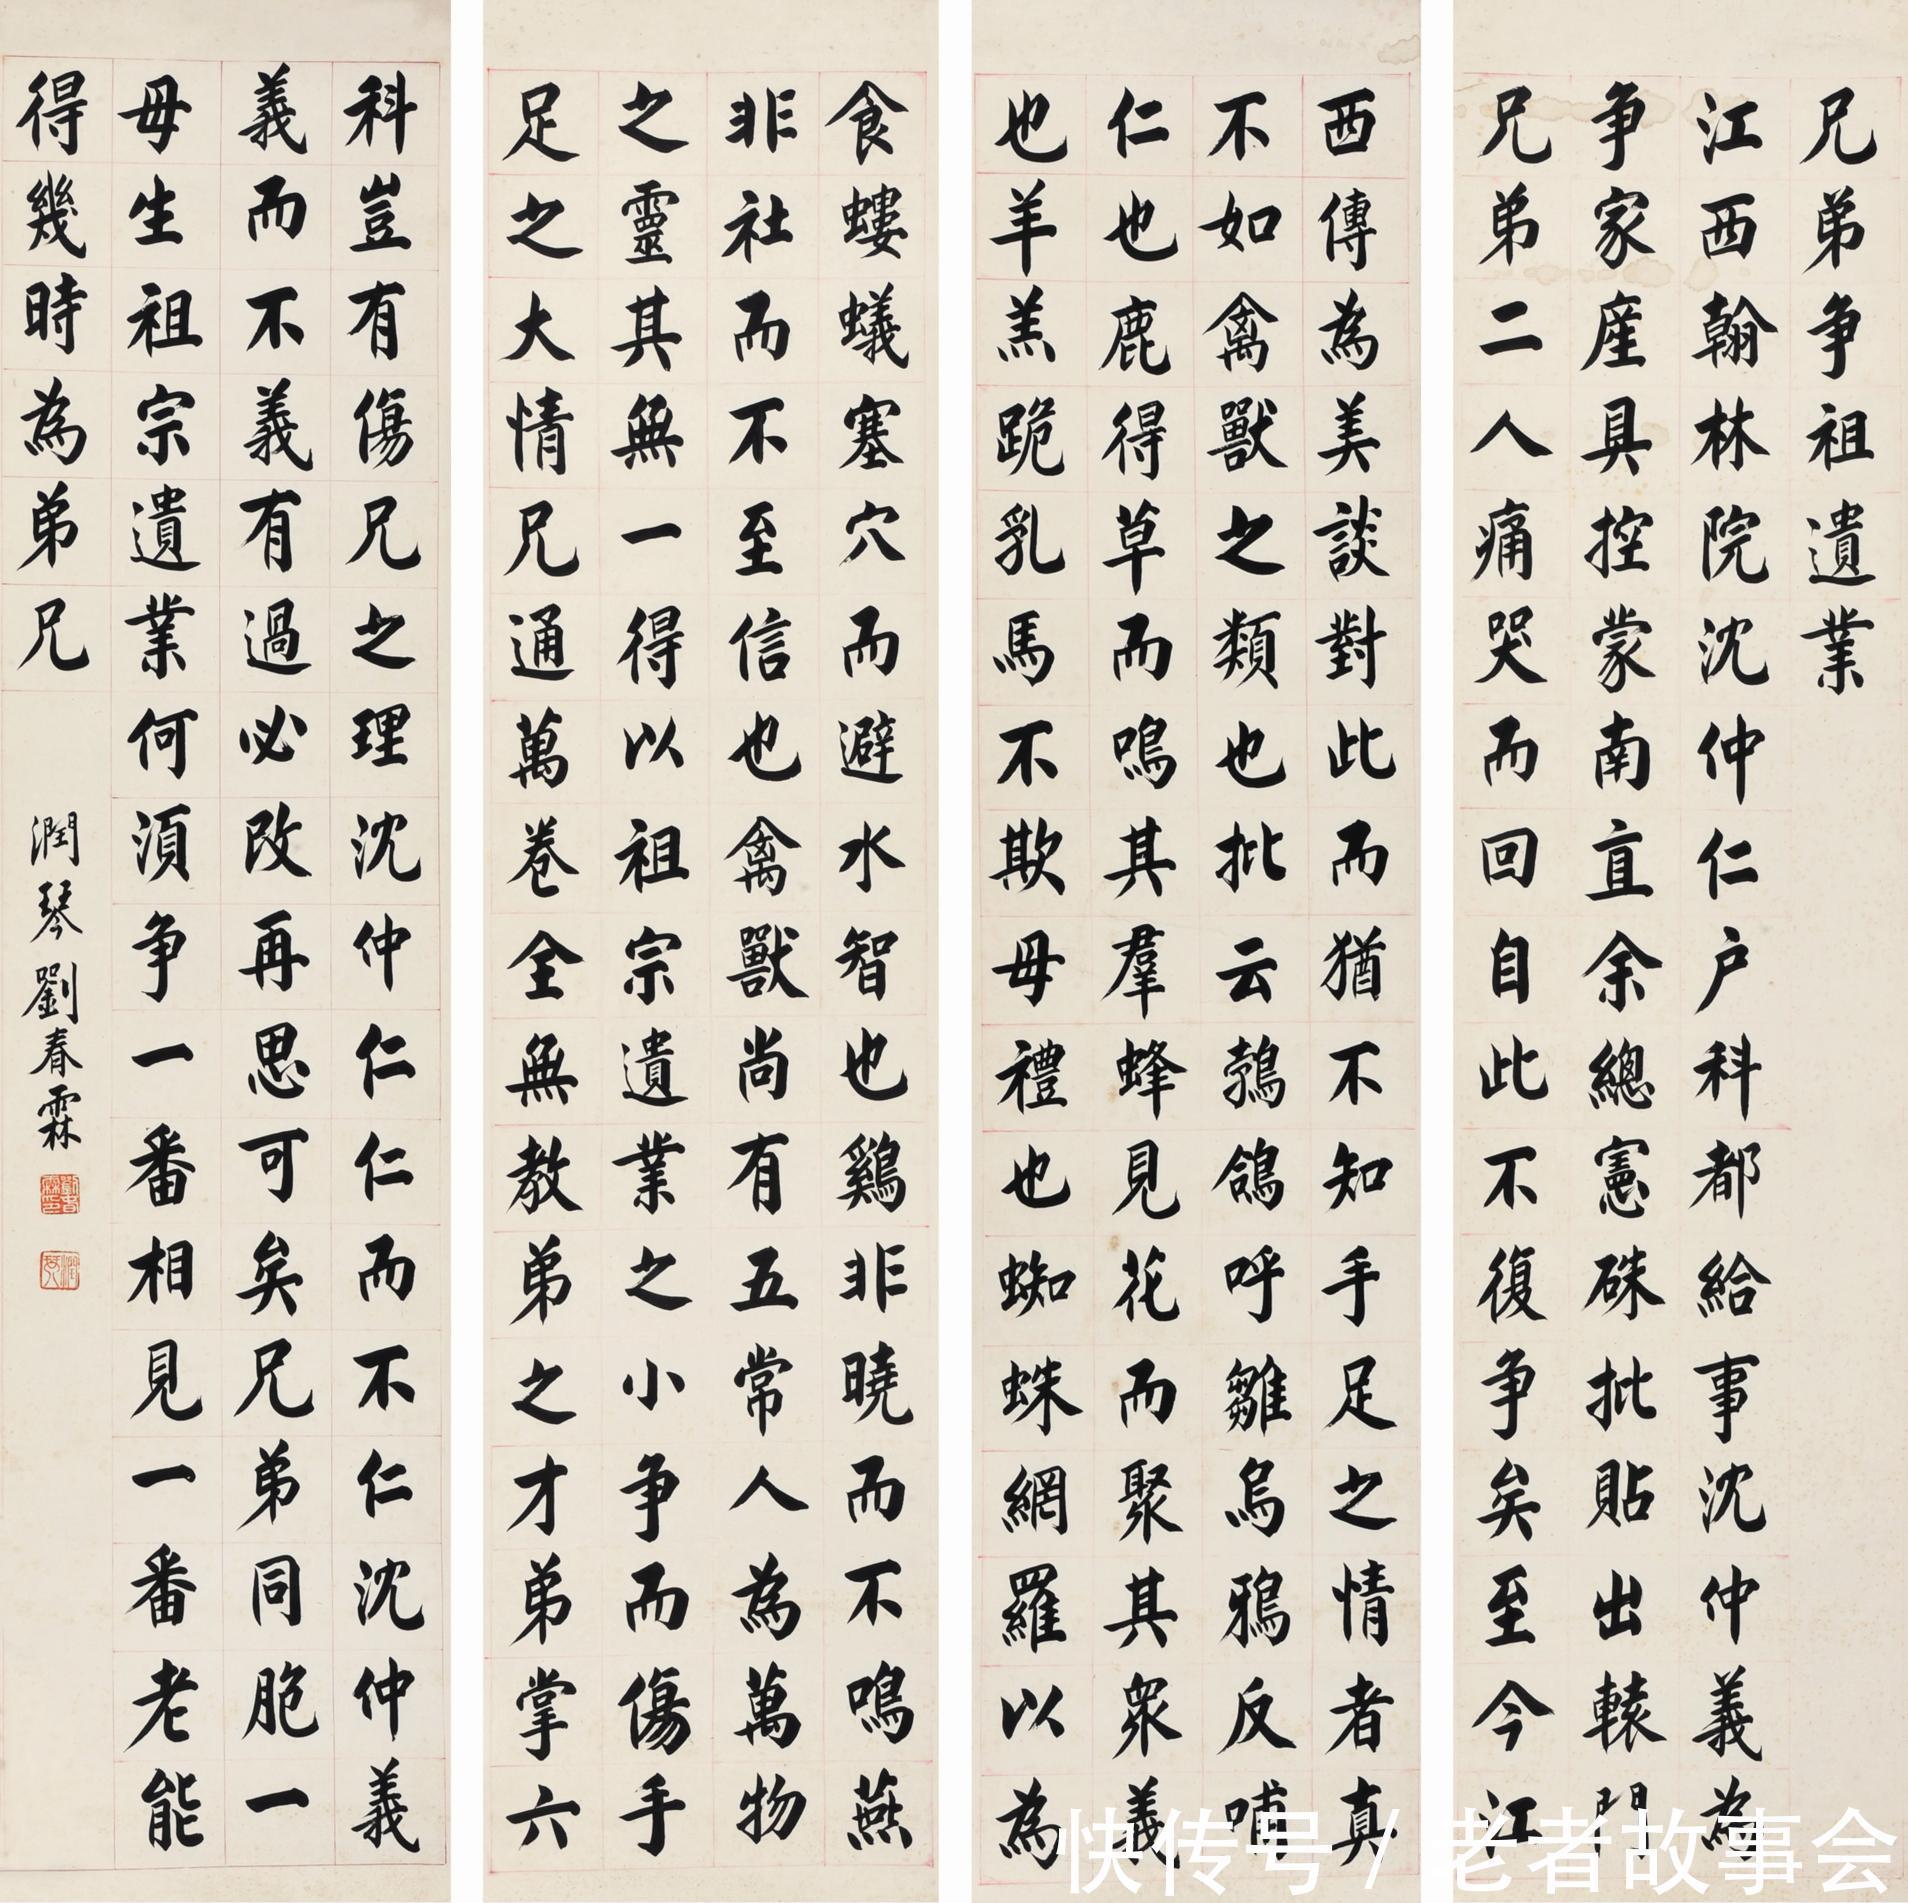 兄弟争祖遺業
江西翰林院沈仲仁户科都給事沈仲義為
争家産具控蒙南直余總憲硃批貼出轅門
兄弟二人痛哭而回自此不復争矣至今江
西傳為美談對此而猶不知手足之情者真
不如禽獸之類也批云鵓鴿呼雛烏鴉反哺
仁也鹿得草而鳴其羣蜂見花而聚其衆義
也羊羔跪乳馬不欺母禮也蜘蛛網羅以為
食螻蟻塞穴而避水智也鷄非曉而不鳴燕
非社而不至信也禽獸尚有五常人為萬物
之靈其無一得以祖宗遺業之小争而傷手
足之大情兄通萬卷全無教弟之才弟掌六
科豈有傷兄之理沈仲仁仁而不仁沈仲義
義而不義有過必改再思可矣兄弟同胞一
母生祖宗遺業何須争一番相見一番老能
得幾時為弟兄
潤琴劉春霖
快传号/老者故事会